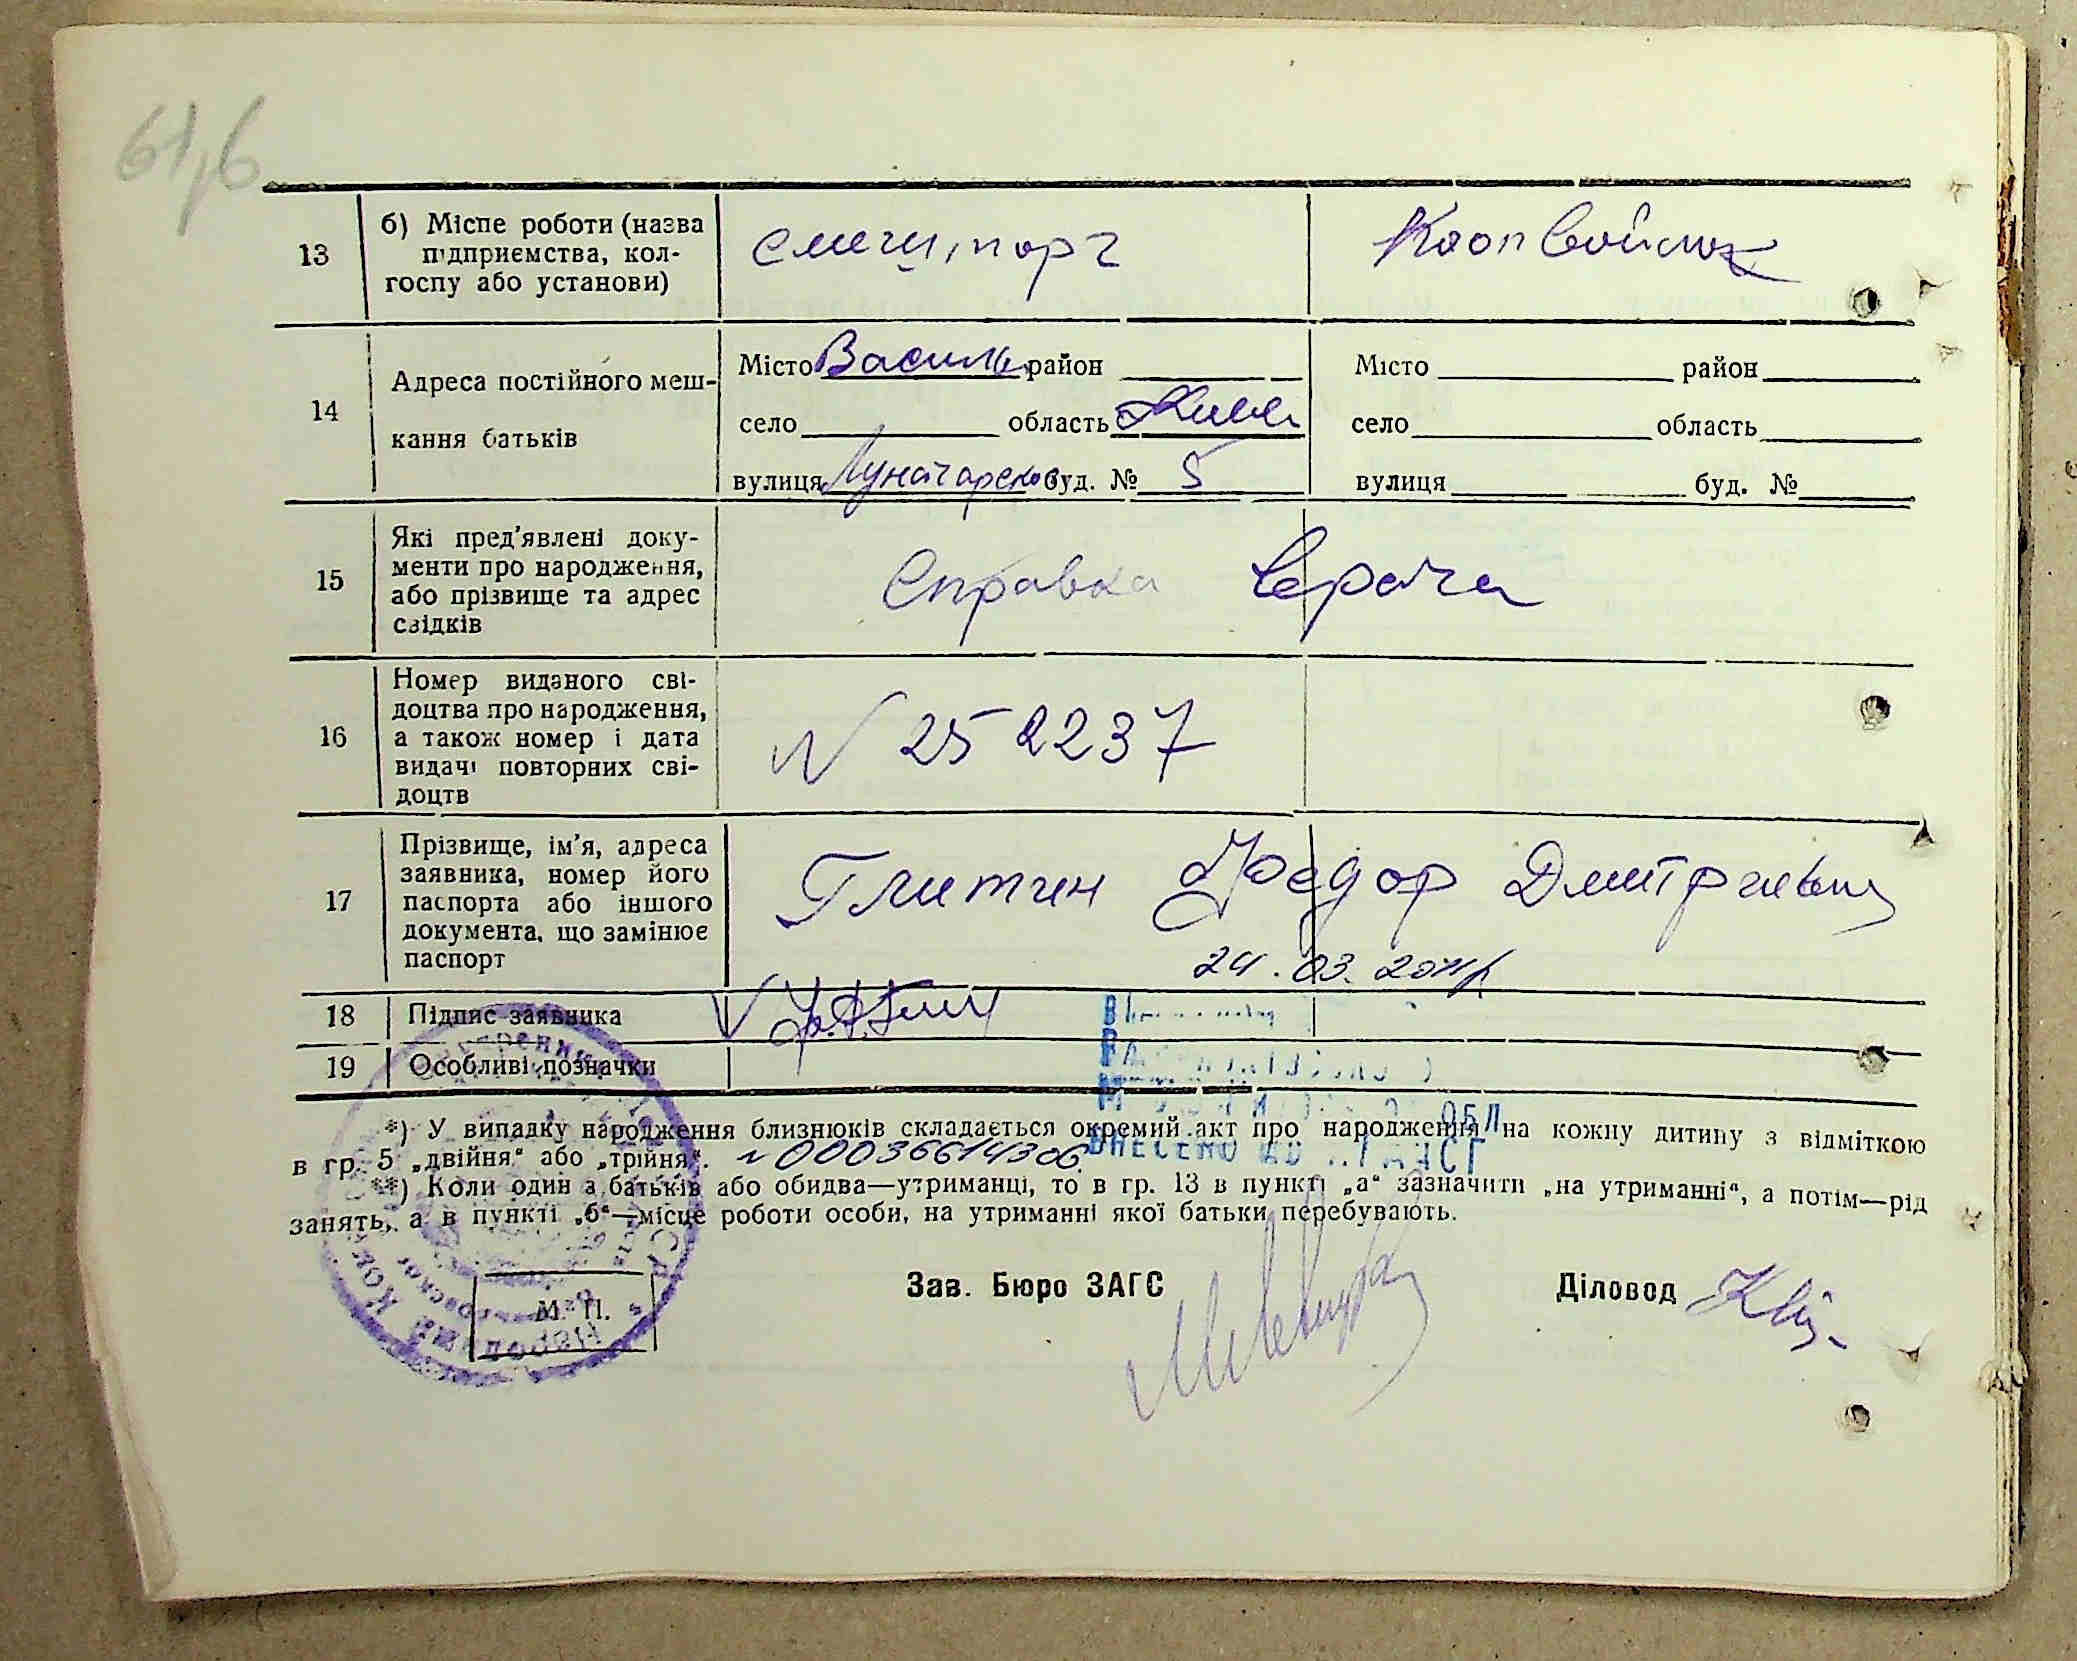 61,6
13
б) Місце роботи (назва
підприємства, кол-
госпу або установи)
14
Адреса постійного меш-
кання батьків
Місто Василь район
село область Київ
вулиця Луначарского буд. № 5
Місто район
село область
вулиця буд. №
15
Які пред'явлені доку-
менти про народження,
або прізвище та адрес
свідків
Справка врача
16
Номер виданого сві-
доцтва про народження,
а також номер і дата
видачі повторних сві-
доцтв
N 252237
17
Прізвище, ім'я, адреса
заявника, номер його
паспорта або іншого
документа, що замінює
паспорт
Глитин Федор Дмитриевич
24.03.
18
Підпис заявника
19
Особливі позначки
*) У випадку народження близнюків складається окремий акт про народження на кожну дитину з відміткою
в гр. 5 „двійня" або „трійня". N 00036614306
ВНЕСЕНО ДО ДРАЦСГ
**) Коли один з батьків або обидва—утриманці, то в гр. 13 в пункті „а" зазначити „на утриманні", а потім—рід
занять, а в пункті „б"—місце роботи особи, на утриманні якої батьки перебувають.
Зав. Бюро ЗАГС
Діловод
М. П.